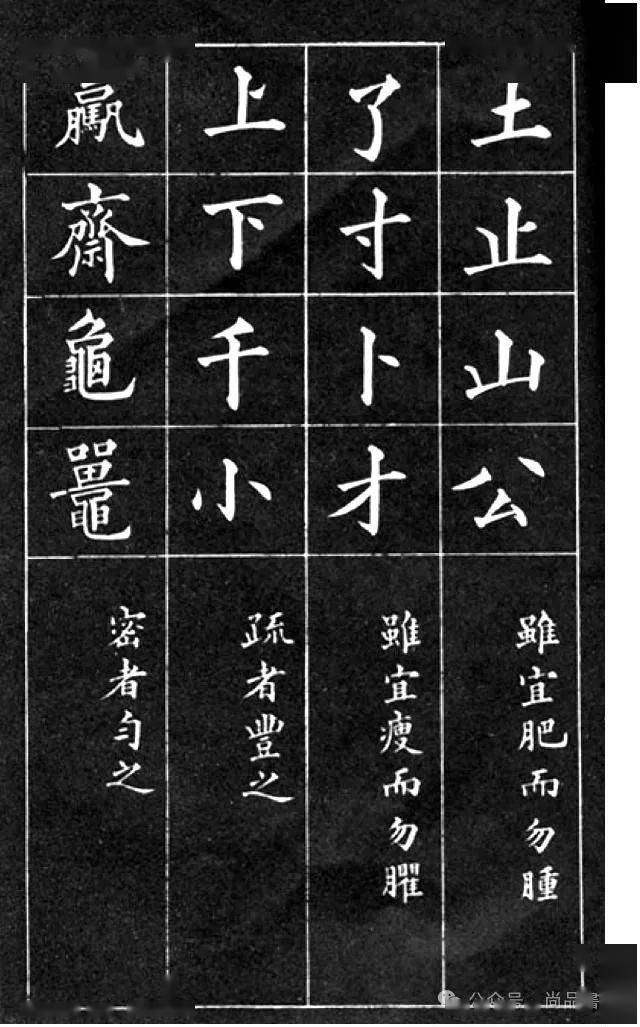 土止山公
雖宜肥而勿腫
了寸卜才
雖宜瘦而勿臞
上下千小
疏者豐之
齋龜鼉
密者勻之
公众号·尚品書